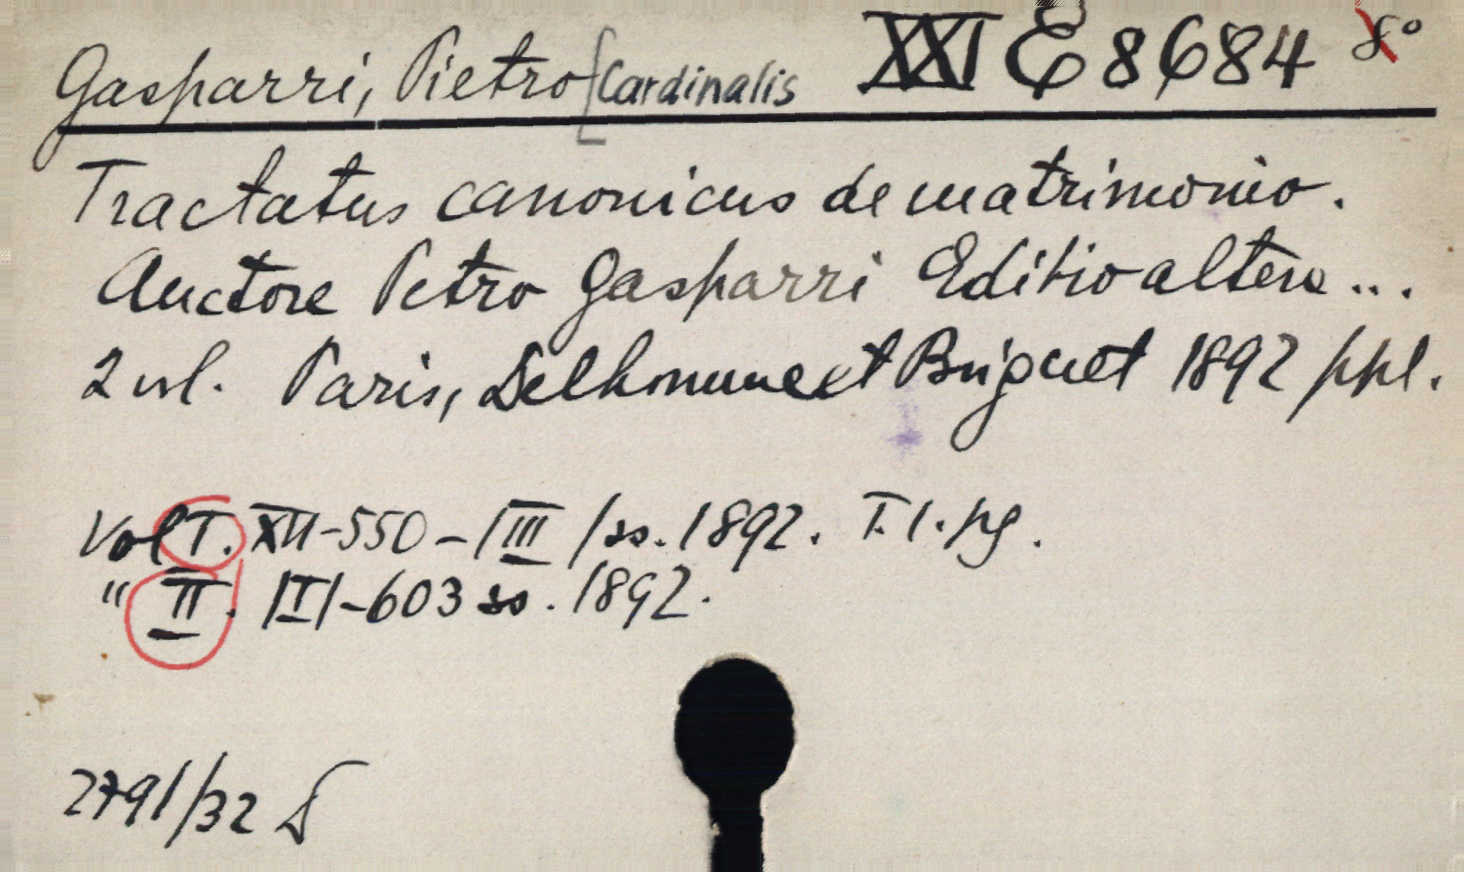 Gasparri, Pietro [Cardinalis XXI E 8684 8°
Tractatus canonicus de matrimonio.
Auctore Petro Gasparri Editio altera ...
2 vol. Paris, Delhomme et Briguet 1892 ppl.
Vol I. XII-550-|III| ss. 1892. T. 1. pg.
" II. |I|-603 ss. 1892.
2791/32